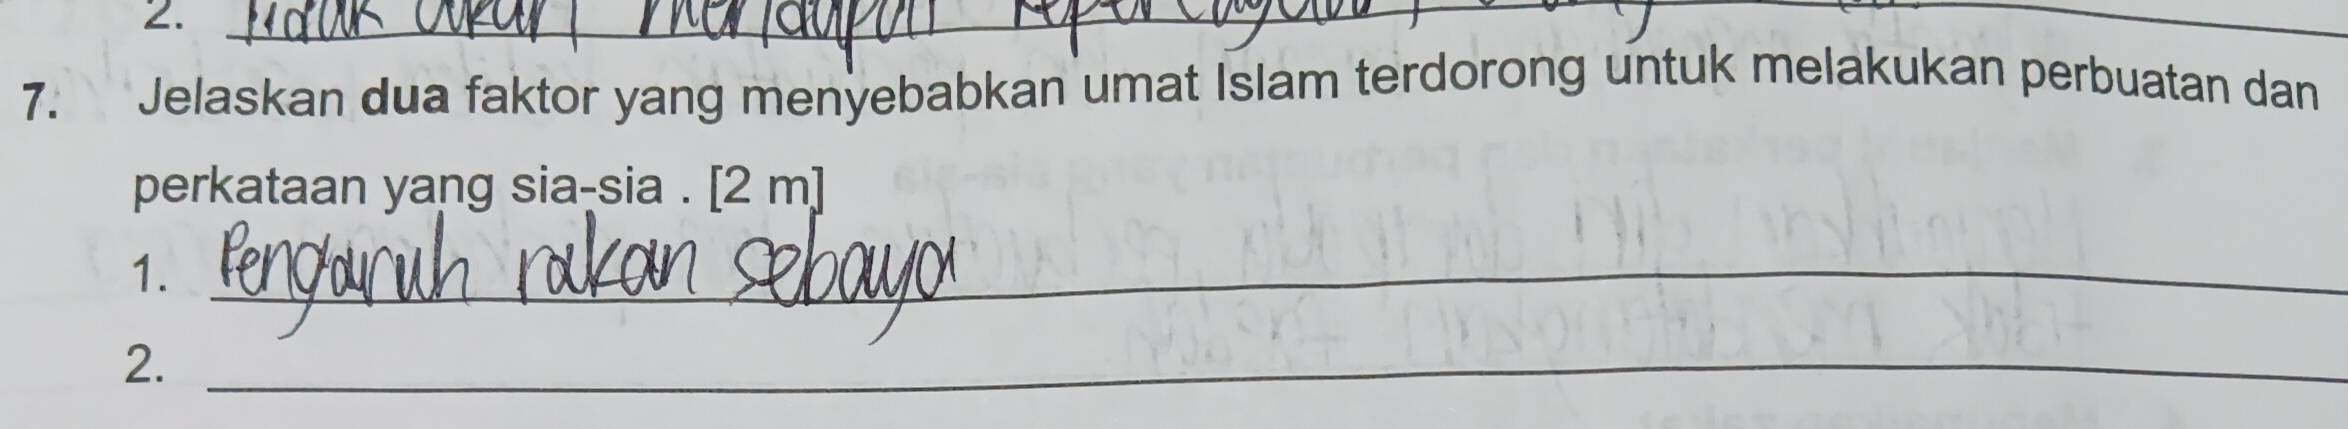 2. tidak akan mendapat keper
7. Jelaskan dua faktor yang menyebabkan umat Islam terdorong untuk melakukan perbuatan dan
perkataan yang sia-sia . [2 m]
1. Pengaruh rakan sebaya
2.